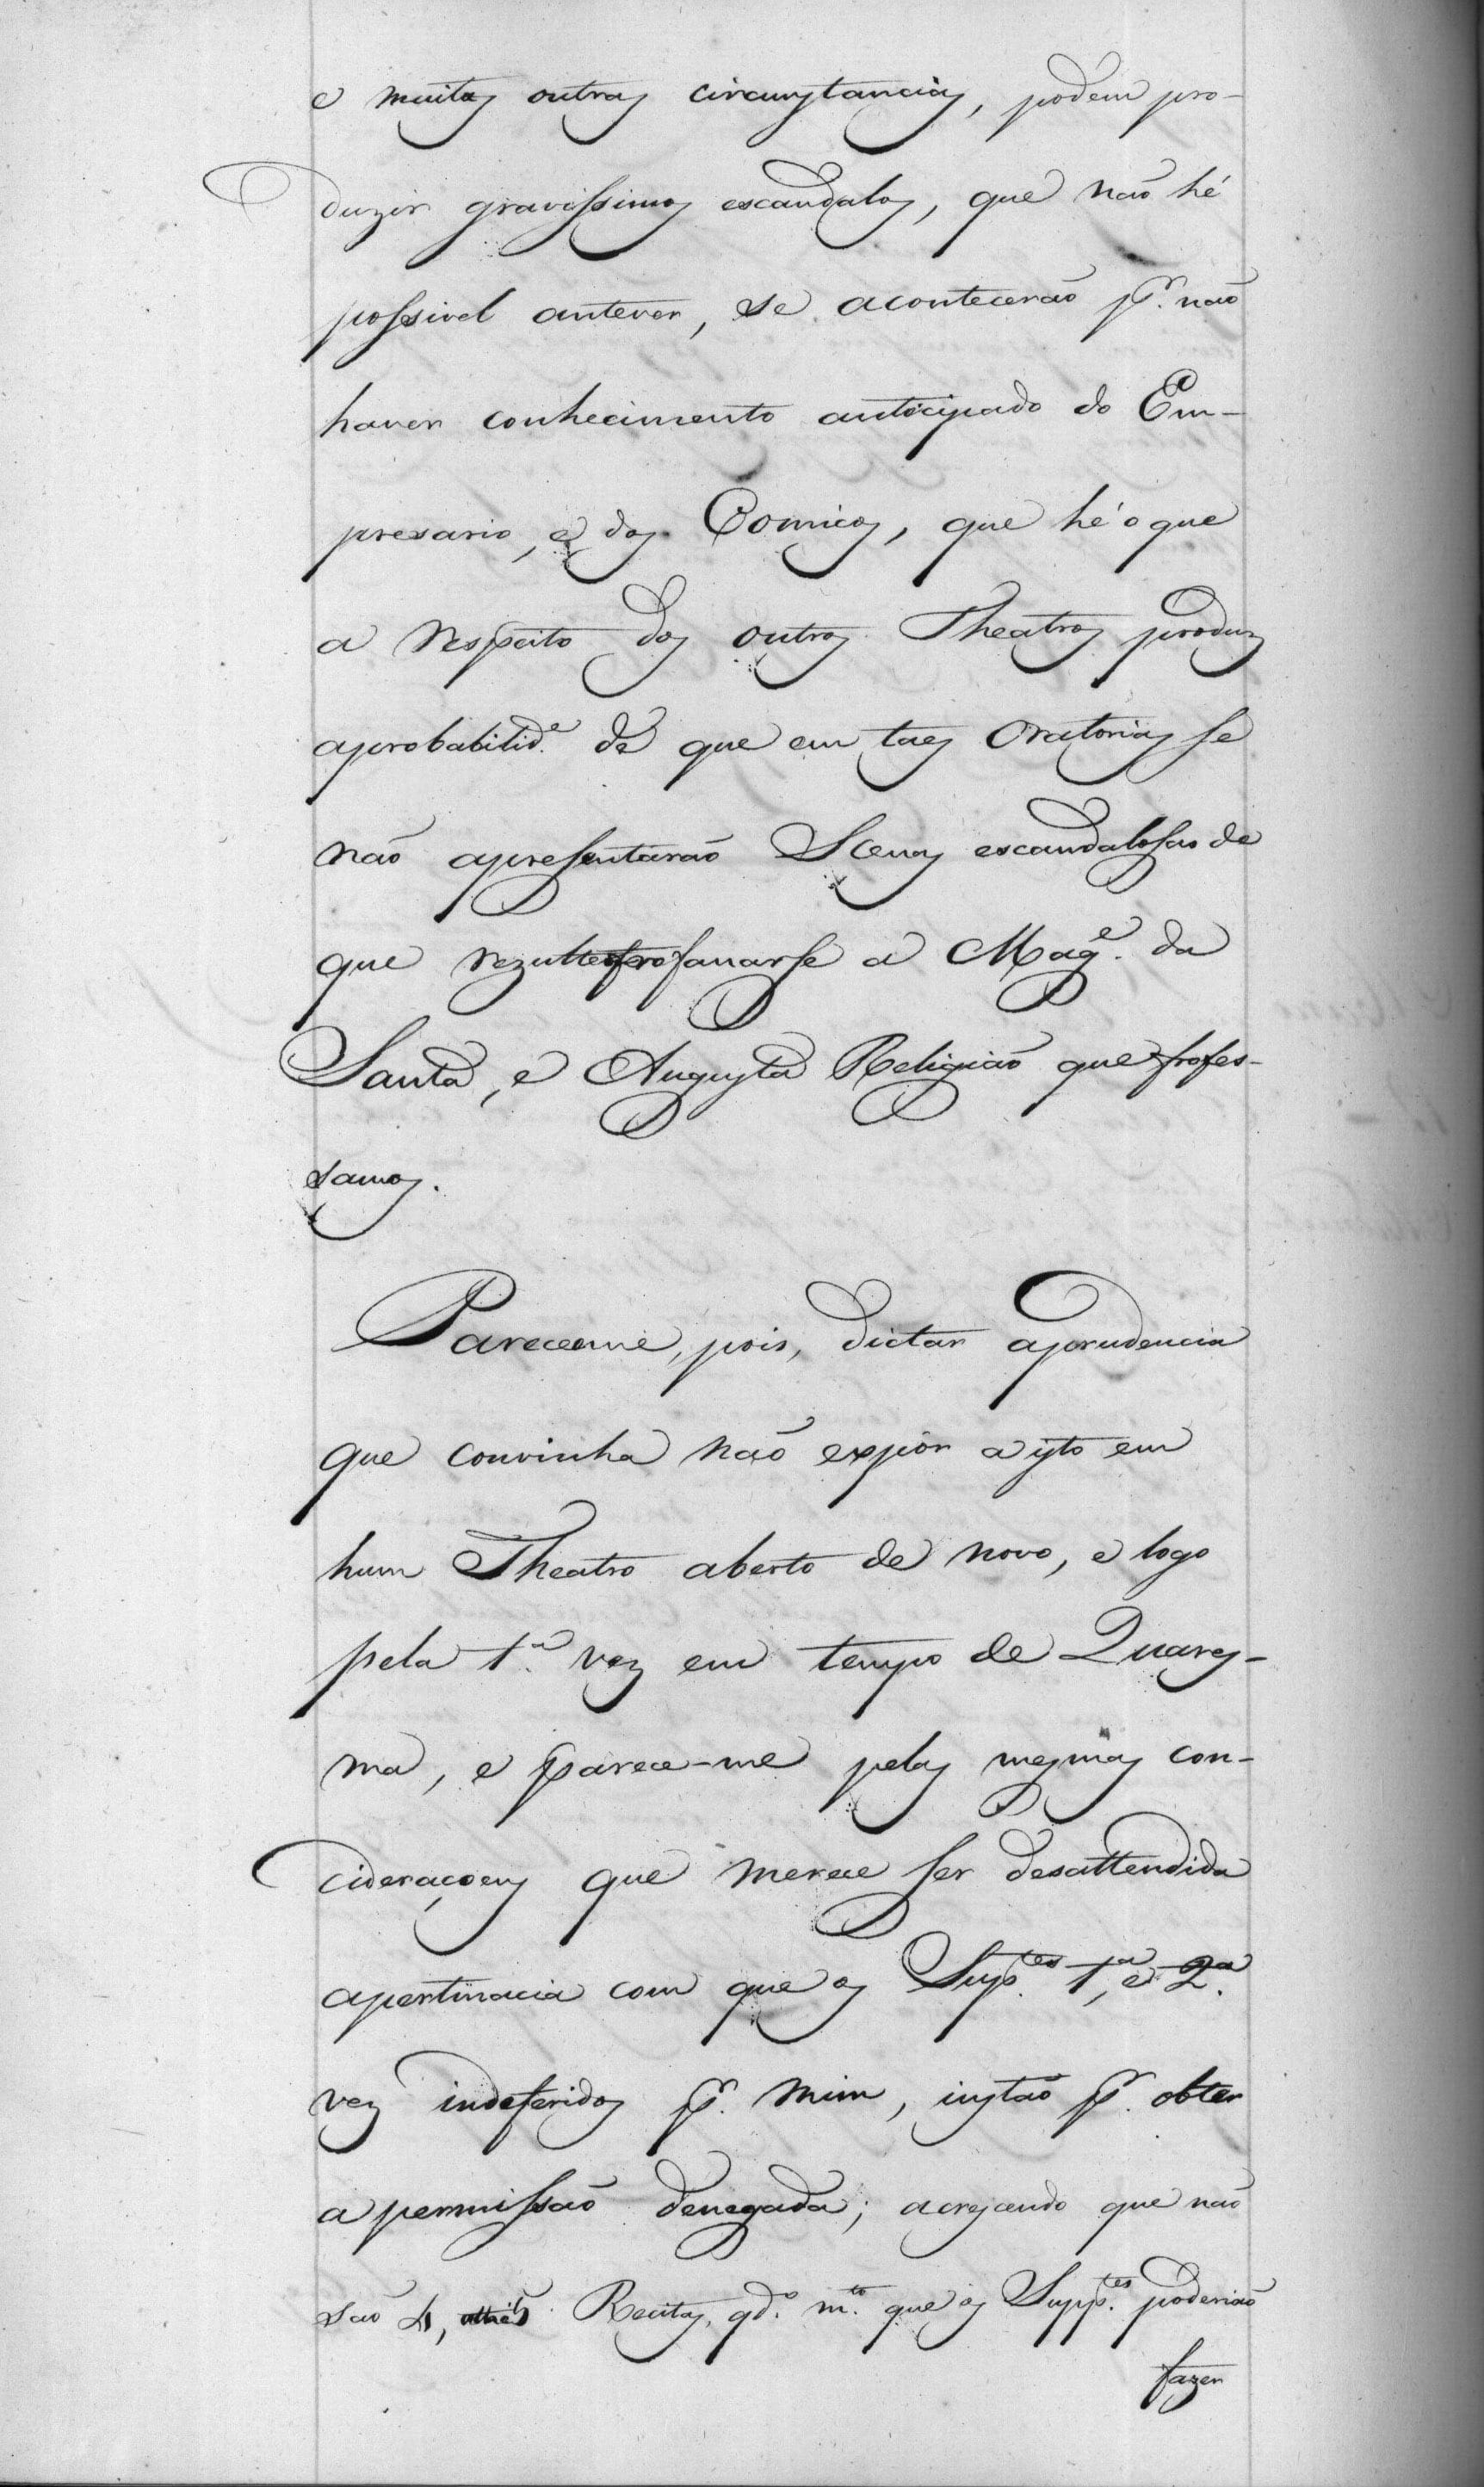 e muitas outras circunstancias, podem pro-
duzir gravissimos escandalos, que não hé
possivel antever, se acontecerão pr. não
haver conhecimento anticipado do Em-
presario, e dos Comicos, que hé o que
a respeito dos outros Theatros produz
aprobabilide. de que em taes Oratorias se
não apresentarão Scenas escandalosas de
que rezulte profanarse a Mage. da
Santa, e Augusta Religião que profes-
samos.
Pareceme, pois, dictar aprudencia
que convinha não expôr a isto em
hum Theatro aberto de novo, e logo
pela 1.a vez em tempo de Quares-
ma, e parece-me pelas mesmas con-
cideraçoens que merece ser desattendida
apertinacia com que os Supp.tes 1.a, e 2.a
vez indeferidos pr. mim, instão pr. obter
a permissão denegada; acrescendo que não
são 4, Recitas, qdo. mto. que os Supp.tes poderião
fazer